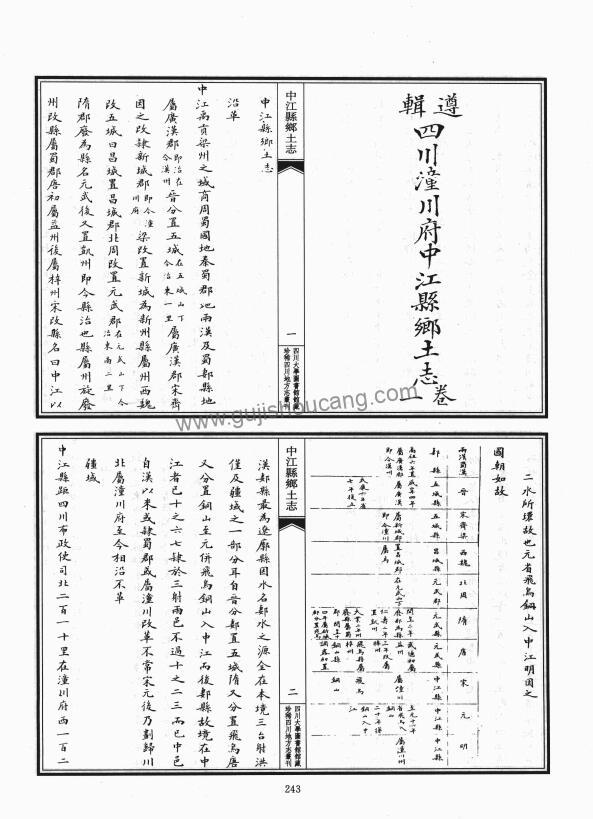 遵
輯
四川潼川府中江縣鄉土志卷一
中江縣鄉土志
一
四川大學圖書館館藏
珍稀四川地方志叢刊
中江縣鄉土志
沿革
中江禹貢梁州之域商周蜀國地秦蜀郡地兩漢及蜀郪縣地
屬廣漢郡即治在今漢州晉分置五城在五城山下今治東一里屬廣漢郡宋齊
因之改隸新城郡即今潼川府梁改置新城為新州縣屬州西魏
改五城曰昌城置昌城郡北周改置元武郡在元武山下今治東南二里
隋郡廢為縣名元武後又置凱州即今縣治也縣屬州旋廢
州改縣屬蜀郡唐初屬益州後屬梓州宋改縣名曰中江以
二水所環故也元省飛烏銅山入中江明因之
國朝如故
兩漢蜀漢
晉
宋齊梁
西魏
北周
隋
唐
宋
元
明
郪縣
五城縣
五城縣
昌城縣
元武郡
元武縣
元武縣
中江縣
中江縣
中江縣
中江縣鄉土志
二
四川大學圖書館館藏
珍稀四川地方志叢刊
漢郪縣最為遼廓縣因水名郪水之源全在本境三台射洪
僅及疆域之一部分耳自晉分郪置五城隋又分置飛烏唐
又分置銅山至元併飛烏銅山入中江而後郪縣故境在中
江者已十之六七隸於三射兩邑不過十之二三而已中邑
自漢以來或隸蜀郡或屬潼川改革不常宋元後乃劃歸川
北屬潼川府至今相沿不革
疆域
中江縣距四川布政使司北二百一十里在潼川府西一百二
243
www.gujishoucang.com